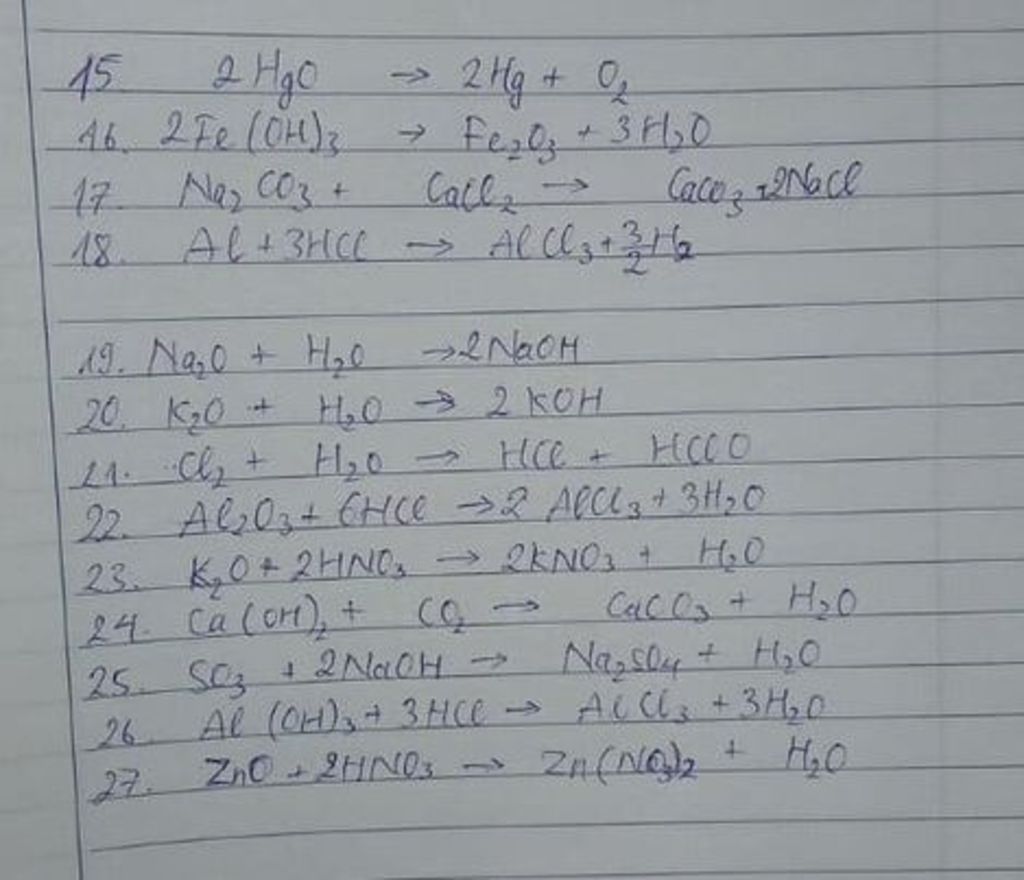 15. 2HgO → 2Hg + O₂
16. 2Fe(OH)₃ → Fe₂O₃ + 3H₂O
17. Na₂CO₃ + CaCl₂ → CaCO₃ + 2NaCl
18. Al + 3HCl → AlCl₃ + 3/2 H₂
19. Na₂O + H₂O → 2NaOH
20. K₂O + H₂O → 2KOH
21. Cl₂ + H₂O → HCl + HClO
22. Al₂O₃ + 6HCl → 2AlCl₃ + 3H₂O
23. K₂O + 2HNO₃ → 2KNO₃ + H₂O
24. Ca(OH)₂ + CO₂ → CaCO₃ + H₂O
25. SO₃ + 2NaOH → Na₂SO₄ + H₂O
26. Al(OH)₃ + 3HCl → AlCl₃ + 3H₂O
27. ZnO + 2HNO₃ → Zn(NO₃)₂ + H₂O